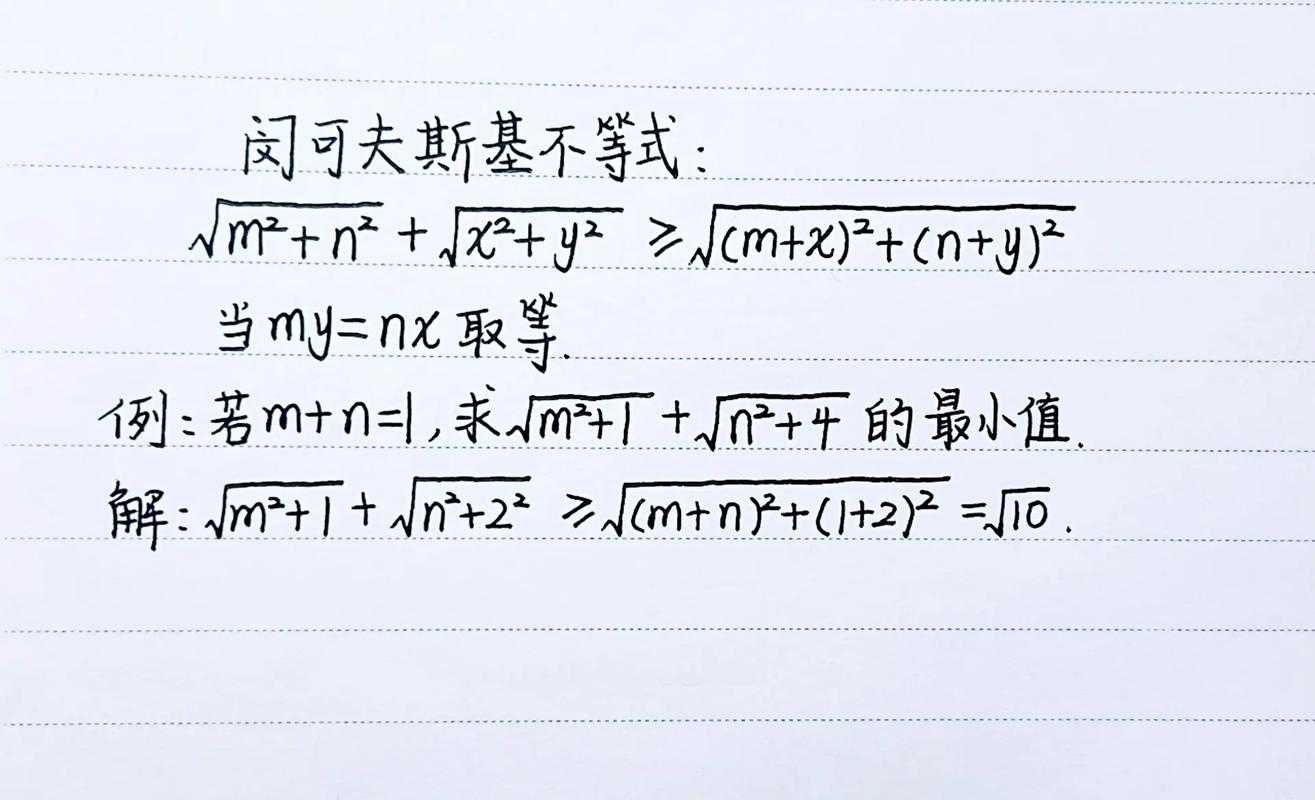 闵可夫斯基不等式:
√(m²+n²) + √(x²+y²) ≥ √((m+x)²+(n+y)²)
当my=nx取等.
例:若m+n=1,求√(m²+1) + √(n²+4) 的最小值.
解:√(m²+1) + √(n²+2²) ≥ √((m+n)²+(1+2)²) = √10.